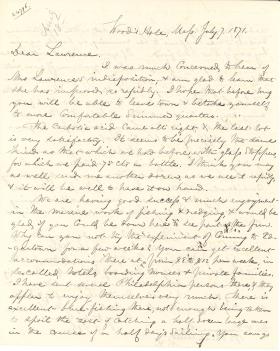 Wood's Hole, Mass. July 7. 1871.
Dear Lawrence,
I was much concerned to hear of
Mrs Lawrence's indisposition, & am glad to learn that
she has improved so rapidly. I hope that before long
you will be able to leave town & betake yourself
to more comfortable Summer quarters.
The Carbolic acid came all right & the last lot
is very satisfactory. It seems to be precisely the same
thing as the article we had before with glass stoppers
for which we paid 75 cts a bottle. I think you may
as well send me another dozen, as we use it rapidly
& it will be well to have it on hand.
We are having good success & much enjoyment
in the marine work of fishing & dredging & would be
glad if you could be down here to see part of the fun.
Why can you not by the
for a few weeks? You can get excellent
accommodations there at from 8 to per week, in
hotels, boarding houses & private families.
I have sent some Philadelphia persons there, & they
appear to enjoy themselves very much. There is
excellent blue-fishing there, not enough being taken
to spoil the zest of catching a half dozen large ones
in the course of a half day's sailing. You can go